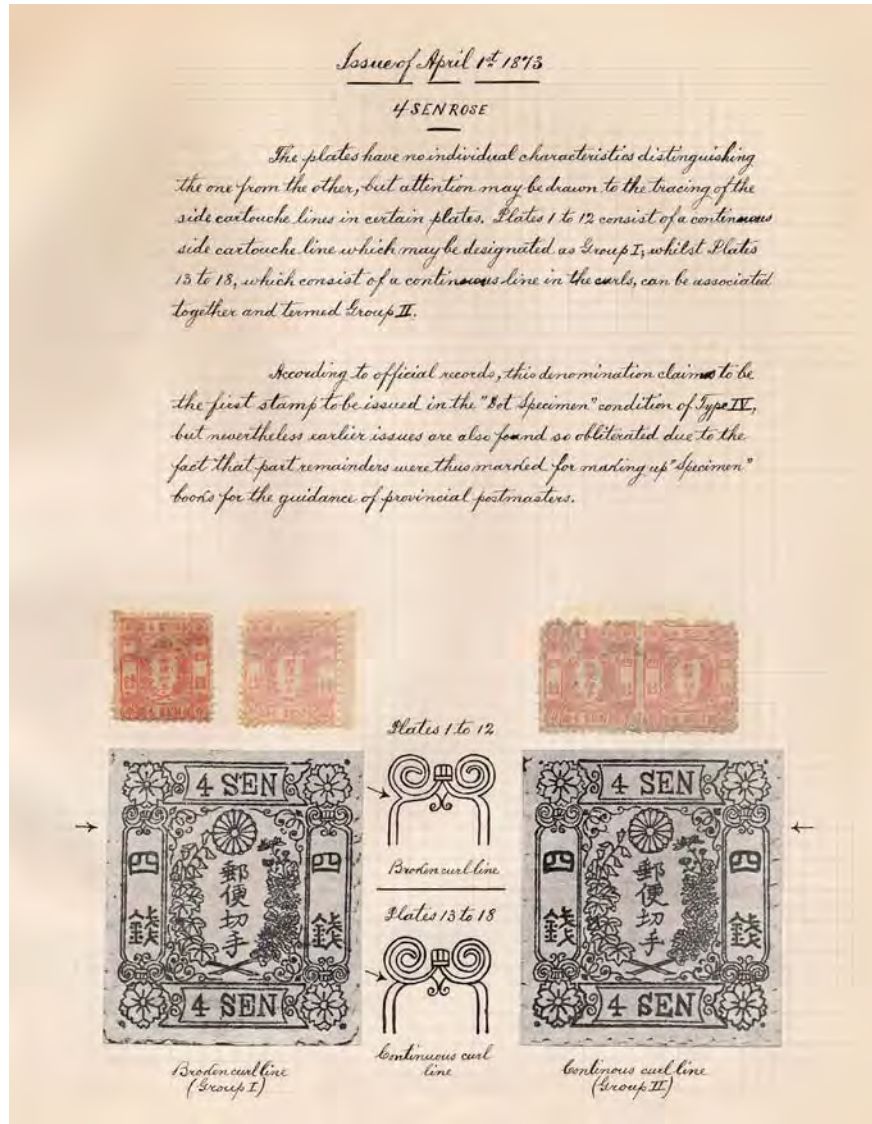 Issue of April 1st 1873
4 SEN ROSE
The plates have no individual characteristics distinguishing
the one from the other, but attention may be drawn to the tracing of the
side cartouche lines in certain plates. Plates 1 to 12 consist of a continuous
side cartouche line which may be designated as Group I, whilst Plates
13 to 18, which consist of a continuous line in the curls, can be associated
together and termed Group II.
According to official records, this denomination claims to be
the first stamp to be issued in the "Dot Specimen" condition of Type IV,
but nevertheless earlier issues are also found so obliterated due to the
fact that part remainders were thus marked for making up "Specimen"
books for the guidance of provincial postmasters.
4 SEN
Plates 1 to 12
4 SEN
四錢
郵便切手
四錢
4 SEN
Broken curl line
Plates 13 to 18
Continuous curl
line
4 SEN
四錢
郵便切手
四錢
4 SEN
Broken curl line
(Group I)
Continous curl line
(Group II)